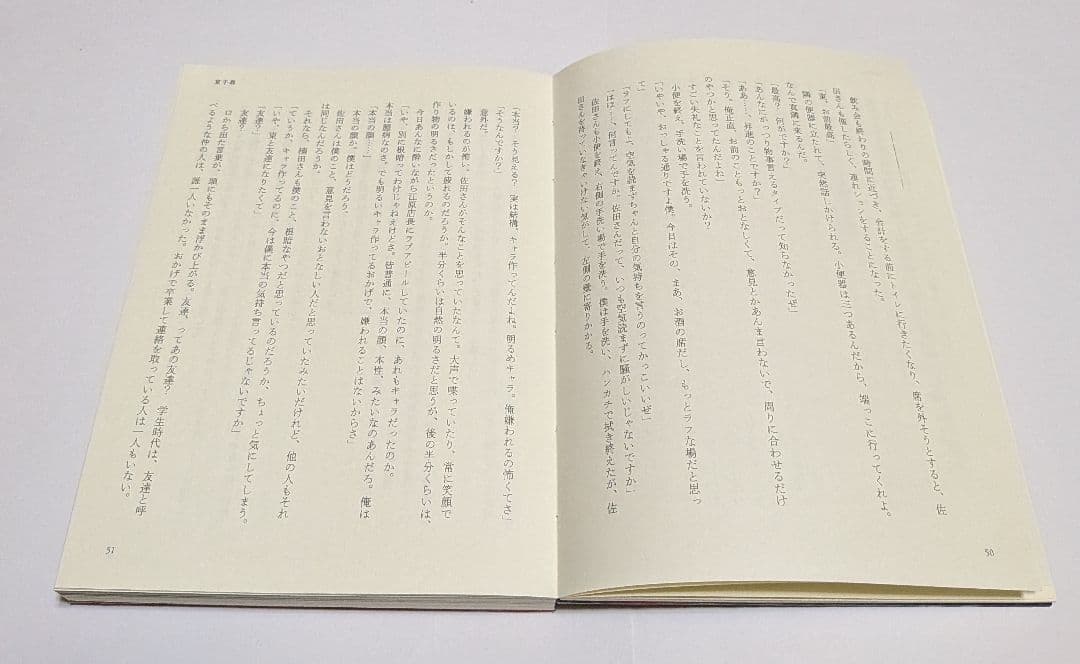 飲み会も終わりの時間に近づき、会計をする前にトイレに行きたくなり、席を外そうとすると、佐
田さんも催したらしく、連れションをすることになった。
「東、お前最高」
隣の便器に立たれて、突然話しかけられる。小便器は三つあるんだから、端っこに行ってくれよ。
なんで真隣に来るんだ。
「最高? 何がですか?」
「あんなにがっつり物事言えるタイプだって知らなかったぜ」
「ああ…、昇進のことですか?」
「そう。俺正直、お前のこともっとおとなしくて、意見とかあんま言わないで、周りに合わせるだけ
のやつかと思ってたんだよね」
すごい失礼なことを言われていないか?
小便を終え、手洗い場で手を洗う。
「いやいや、おっしゃる通りですよ僕。今日はその、まあ、お酒の席だし、もっとラフな場だと思っ
て」
「ラフにしても、空気を読まずちゃんと自分の気持ちを言うのってかっこいいぜ」
「はは…、何言ってんですか。佐田さんだって、いつも空気読まずに騒がしいじゃないですか」
佐田さんも小便を終え、右側の手洗い場で手を洗う。僕は手を洗い、ハンカチで拭き終えたが、佐
田さんを待っていなきゃいけない気がして、左側の壁に寄りかかる。
50
「本当? そう見える? 実は結構、キャラ作ってんだよね。明るめキャラ。俺嫌われるの怖くてさ」
「そうなんですか?」
意外だ。
嫌われるのが怖い。佐田さんがそんなことを思っていたなんて。大声で喋っていたり、常に笑顔で
いるのは、もしかして疲れるのだろうか。半分くらいは自然の明るさだと思うが、後の半分くらいは、
作り物の明るさだったというのか。
今日あんなに酔いながら江原店長にラブアピールしていたのに、あれもキャラだったのか。
「いや、別に根暗ってわけじゃねえけどさ。皆普通に、本当の顔、本性、みたいなのあんだろ。俺は
本当は臆病なのさ。でも明るいキャラ作ってるおかげで、嫌われることはないからさ」
「本当の顔…」
本当の顔か。僕はどうだろう。
佐田さんは僕のこと、意見を言わないおとなしい人だと思っていたみたいだけれど、他の人もそれ
は同じなんだろうか。
それなら、楠田さんも僕のこと、根暗なやつだと思っているのだろうか、ちょっと気にしてしまう。
「ていうか、キャラ作ってるのに、今は僕に本当の気持ち言ってるじゃないですか」
「いや、東と友達になりたくて」
「友達?」
友達?
口から出た言葉が、頭にもそのまま浮かび上がる。友達、ってあの友達? 学生時代は、友達と呼
べるような仲の人は、誰一人いなかった。おかげで卒業して連絡を取っている人は一人もいない。
51